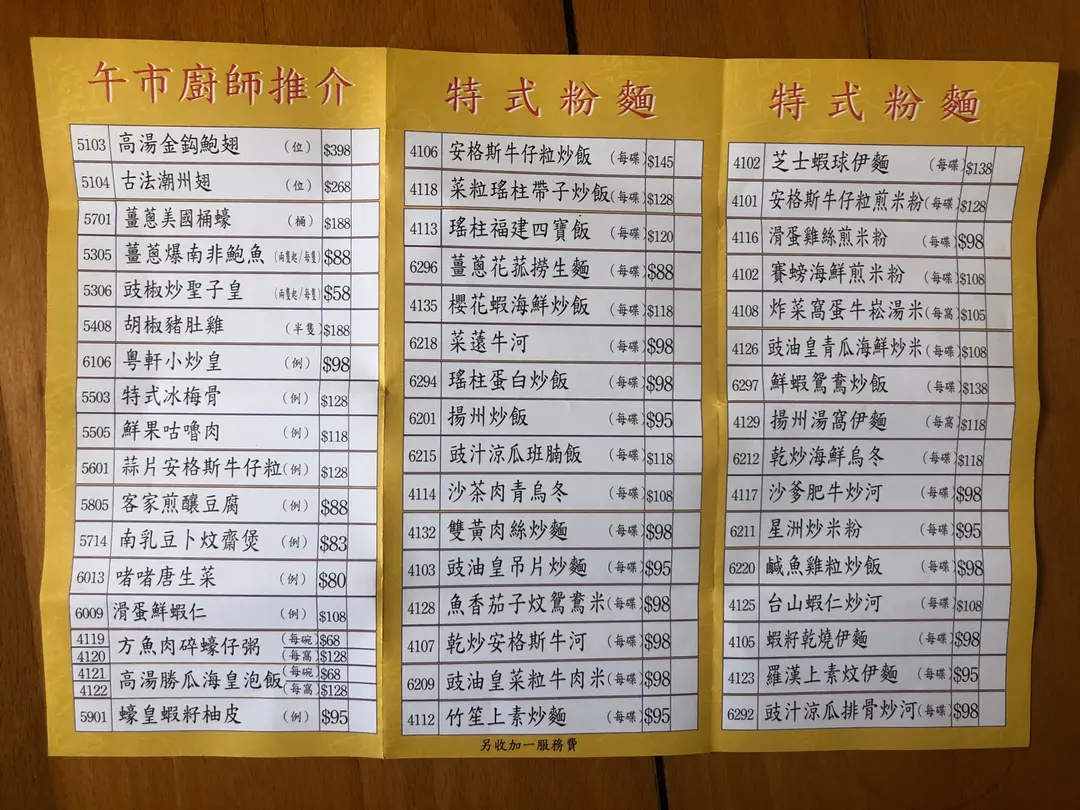 午市廚師推介
5103 高湯金鈎鮑翅 (位) $398
5104 古法潮州翅 (位) $268
5701 薑蔥美國桶蠔 (桶) $188
5305 薑蔥爆南非鮑魚 (兩隻起/每隻) $88
5306 豉椒炒聖子皇 (兩隻起/每隻) $58
5408 胡椒豬肚雞 (半隻) $188
6106 粵軒小炒皇 (例) $98
5503 特式冰梅骨 (例) $128
5505 鮮果咕嚕肉 (例) $118
5601 蒜片安格斯牛仔粒 (例) $128
5805 客家煎釀豆腐 (例) $88
5714 南乳豆卜炆齋煲 (例) $83
6013 啫啫唐生菜 (例) $80
6009 滑蛋鮮蝦仁 (例) $108
4119 方魚肉碎蠔仔粥 (每碗) $68
4120 (每窩) $128
4121 高湯勝瓜海皇泡飯 (每碗) $68
4122 (每窩) $128
5901 蠔皇蝦籽柚皮 (例) $95
特式粉麵
4106 安格斯牛仔粒炒飯 (每碟) $145
4118 菜粒瑤柱帶子炒飯 (每碟) $128
4113 瑤柱福建四寶飯 (每碟) $120
6296 薑蔥花菰撈生麵 (每碟) $88
4135 櫻花蝦海鮮炒飯 (每碟) $118
6218 菜遠牛河 (每碟) $98
6294 瑤柱蛋白炒飯 (每碟) $98
6201 揚州炒飯 (每碟) $95
6215 豉汁涼瓜班腩飯 (每碟) $118
4114 沙茶肉青烏冬 (每碟) $108
4132 雙黃肉絲炒麵 (每碟) $98
4103 豉油皇吊片炒麵 (每碟) $95
4128 魚香茄子炆鴛鴦米 (每碟) $98
4107 乾炒安格斯牛河 (每碟) $98
6209 豉油皇菜粒牛肉米 (每碟) $98
4112 竹笙上素炒麵 (每碟) $95
另收加一服務費
特式粉麵
4102 芝士蝦球伊麵 (每碟) $138
4101 安格斯牛仔粒煎米粉 (每碟) $128
4116 滑蛋雞絲煎米粉 (每碟) $98
4102 賽螃海鮮煎米粉 (每碟) $108
4108 炸菜窩蛋牛崧湯米 (每窩) $105
4126 豉油皇青瓜海鮮炒米 (每碟) $108
6297 鮮蝦鴛鴦炒飯 (每碟) $138
4129 揚州湯窩伊麵 (每窩) $118
6212 乾炒海鮮烏冬 (每碟) $118
4117 沙爹肥牛炒河 (每碟) $98
6211 星洲炒米粉 (每碟) $95
6220 鹹魚雞粒炒飯 (每碟) $98
4125 台山蝦仁炒河 (每碟) $108
4105 蝦籽乾燒伊麵 (每碟) $98
4123 羅漢上素炆伊麵 (每碟) $95
6292 豉汁涼瓜排骨炒河 (每碟) $98